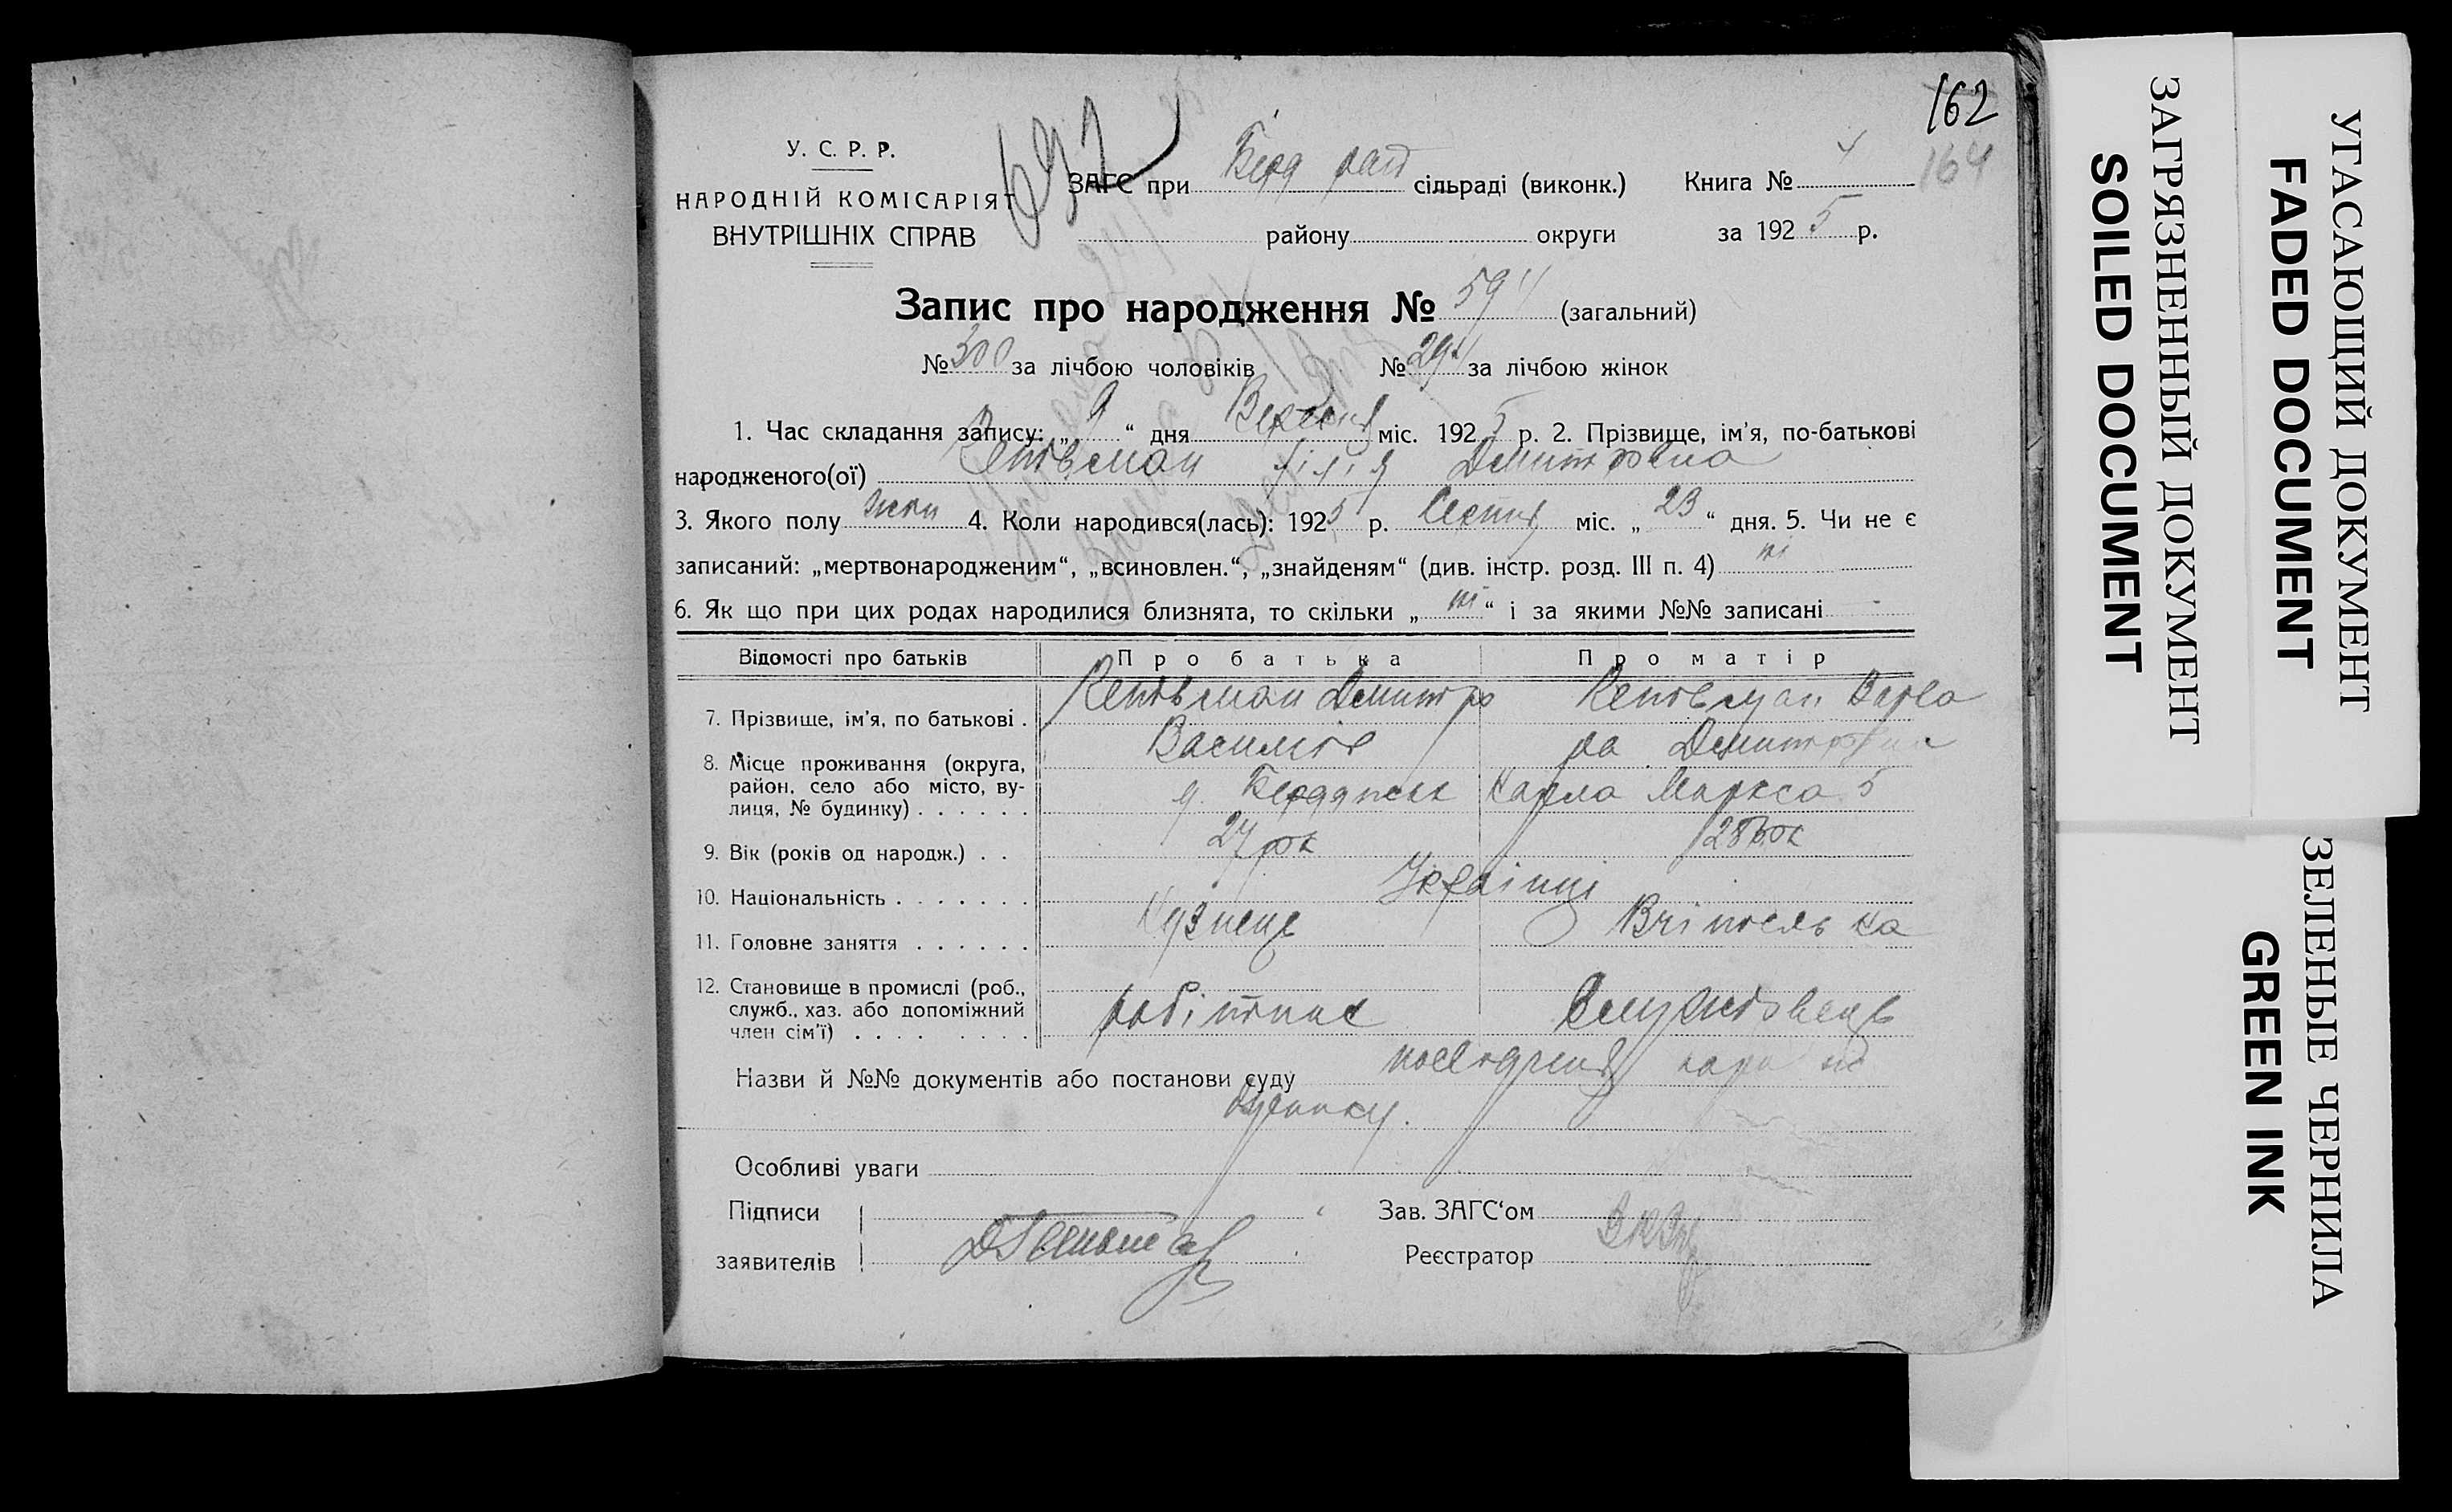 162
164
У. С. Р. Р.
НАРОДНІЙ КОМІСАРІЯТ
ВНУТРІШНІХ СПРАВ
692
ЗАГС при Берд рай сільраді (виконк.) Книга № 4
району округи за 1925 р.
Запис про народження № 594 (загальний)
№ 300 за лічбою чоловіків № 294 за лічбою жінок
1. Час складання запису: „ 9 “ дня Вересня міс. 1925 р. 2. Прізвище, ім'я, по-батькові
народженого(ої) Лілія Дмитровна
3. Якого полу жін 4. Коли народився(лась): 1925 р. Серпня міс. „ 23 “ дня. 5. Чи не є
записаний: „мертвонародженим“, „всиновлен.“, „знайденям“ (див. інстр. розд. III п. 4) ні
6. Як що при цих родах народилися близнята, то скільки „ ні “ і за якими №№ записані -
Відомості про батьків Про батька Про матір
7. Прізвище, ім'я, по батькові . Дмитро Варва
Василів ра Дмитровна
8. Місце проживання (округа, район, село або місто, вулиця, № будинку) . . . . . . Бердянськ Карла Маркса 5
9. Вік (років од народж.) . . 27 рок 28 рок
10. Національність . . . . . . . Українці
11. Головне заняття . . . . . . Кузнець Вчітелька
12. Становище в промислі (роб., служб., хаз. або допоміжний член сім'ї) . . . . . . . . робітник
Назви й №№ документів або постанови суду посвідчення
будинку.
Особливі уваги
Підписи
заявителів
Зав. ЗАГС'ом
Реєстратор
ЗАГРЯЗНЕННЫЙ ДОКУМЕНТ
SOILED DOCUMENT
УГАСАЮЩИЙ ДОКУМЕНТ
FADED DOCUMENT
ЗЕЛЕНЫЕ ЧЕРНИЛА
GREEN INK